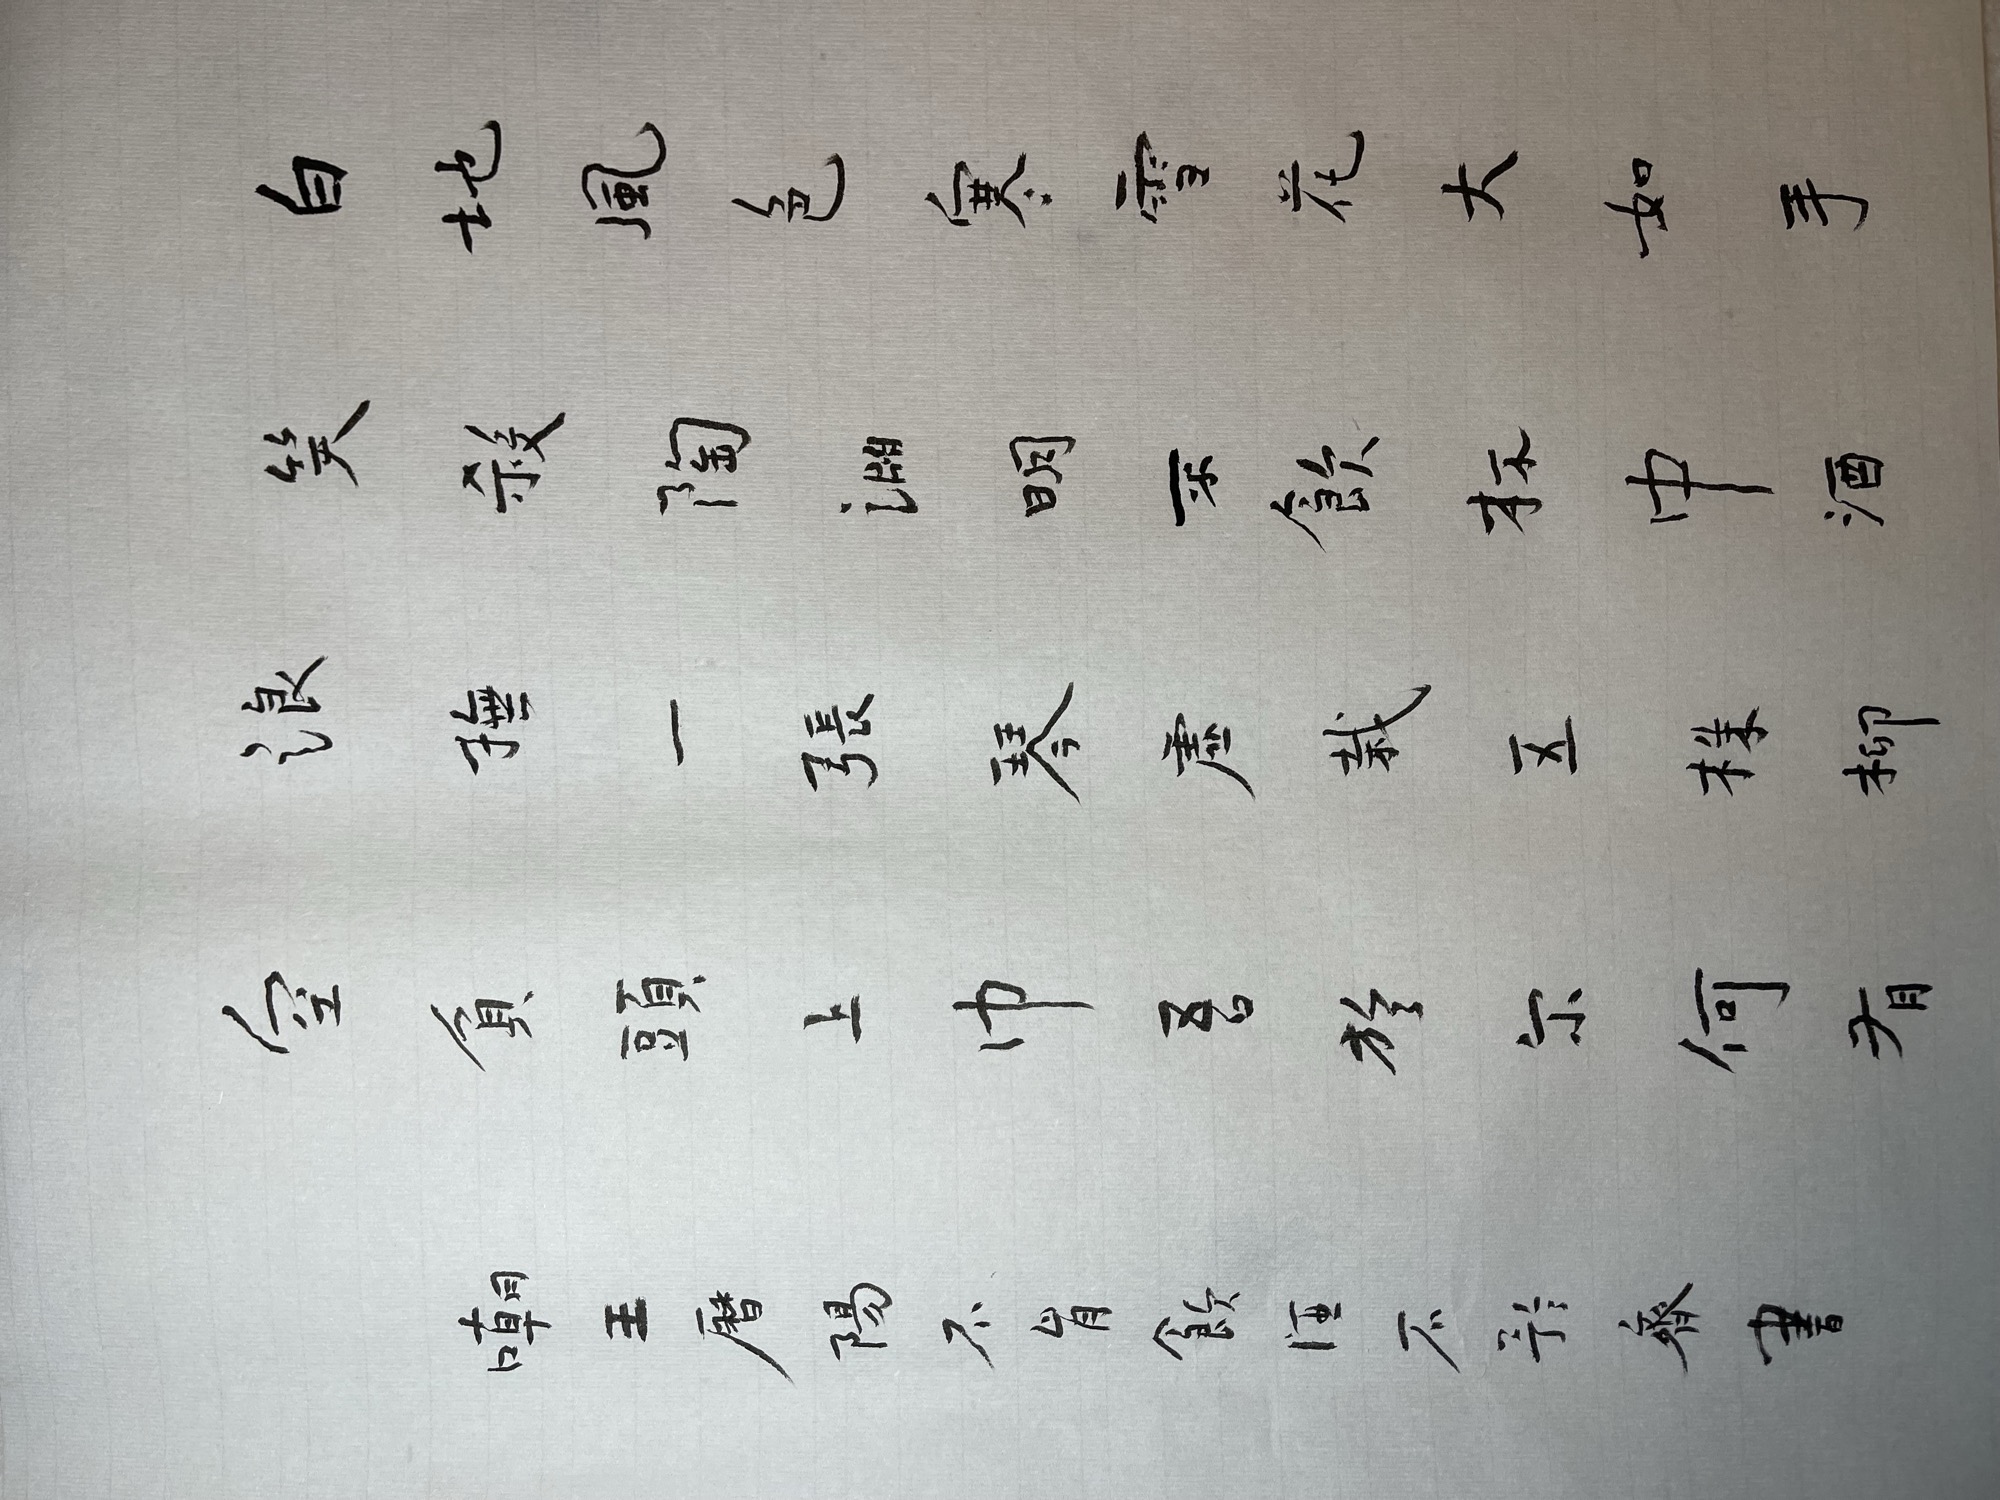 白地風色寒雪花大如手
笑殺陶淵明不飲杯中酒
浪撫一張琴虛栽五株柳
空負頭上巾吾於尔何有
嘲王曆陽不肯飲酒不齊書